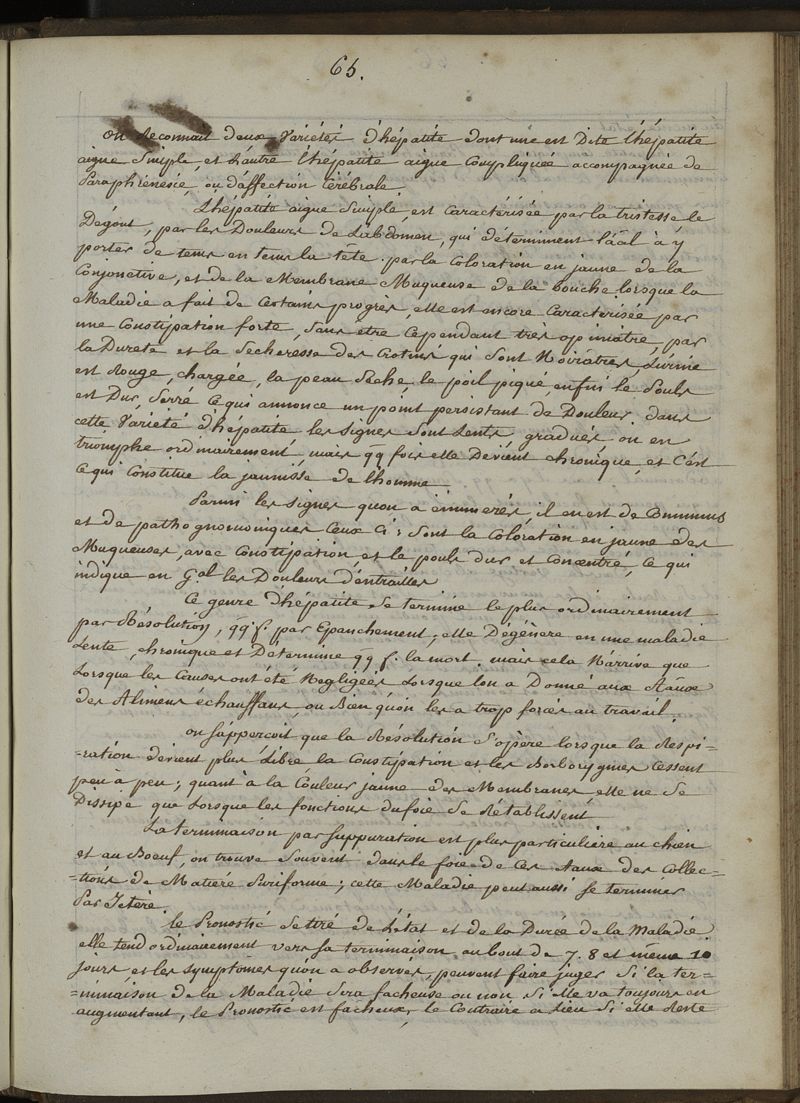 65.
on Reconnait deux Variétés d'hépatite dont une est Dite l'hépatite
aigue Simple, et l'autre l'hépatite aigue Compliquée accompagnée de
Paraphrénésie, ou d'affection Cérébrale.
L'hépatite aigue Simple, est Caractérisée par la tristesse le
Dégout, par les Douleurs de L'abdomen, qui déterminent l'aâl à y
porter de tems en tems la tête. par la Coloration en jaune de la
Conjonctive, et de la Membrane Muqueuse de la bouche, lorsque la
Maladie a fait de Certains progrès, elle est encore Caractérisée par
une Constipation forte, Sans être Cependant très opiniatre, par
la Dureté et la Secheresse des Crotins qui Sont Noiratres, L'urine
est Rouge, chargée, la peau Seche, le poil piqué, enfin le Pouls
est Dur, Serré Ce qui annonce un point persistant de Douleur. dans
cette Variété d'hépatite les Signes Sont Lents, gradués, on en
triomphe ordinairement, mais qq fois elle Devient chronique, et C'est
Ce qui Constitue la jaunisse de l'homme
Parmi les Signes qu'on a énumerés, il en est de Communs
et de pathognomoniques Ceux Ci: Sont la Coloration en jaune des
Muqueuses, avec Constipation, et le pouls dur et Concentré, Ce qui
indique en Gal les Douleurs d'entrailles
Ce genre d'hépatite Se termine le plus ordinairement
par Résolution, qq f. par Epanchement; elle Dégénère en une maladie
Lente, chronique et Détermine qq f. la mort. mais cela N'arrive que
Lorsque les Causes ont été Negligées Lorsque l'on a Donné aux Aãux
des Alimens échauffans, ou Bien qu'on les a trop forcés au travail.
on S'apperçoit que la Résolution S'opère lorsque la Respi-
=ration devient plus Libre la Constipation et les Borborygmes Cessent
peu à peu; quant à la Couleur jaune des Membranes elle ne Se
Dissipe que Lorsque les fonctions du foie Se Rétablissent
La terminaison par Suppuration est plus particulière au chien
et au Boeuf, on trouve Souvent dans le foie de Ces Aaux des Collec-
=tions de Matière Puriforme; cette Maladie peut aussi Se terminer
Par Ictere
Le Pronostic Se tiré de L'état et de la Durée de la Maladie
elle tend ordinairement vers Sa terminaison au bout de 7. 8 et même 10
jours, et les Symptomes qu'on a observés, peuvent faire juger Si la ter-
=minaison de la Maladie Sera facheuse ou non, Si elle va toujours en
augmentant, le Pronostic est facheux, le Contraire a Lieu Si elle Reste